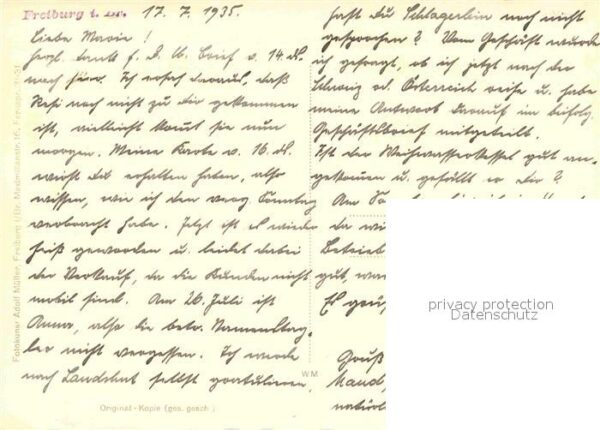 Freiburg i. Br. 17. 7. 1935.
Liebe Marie!
herzl. Dank f. d. lb. Brief v. 14. ds.
nach hier. Ich ersah daraus, daß
Resi noch nicht zu dir gekommen
ist, vielleicht kommt sie nun
morgen. Meine Karte v. 16. ds.
wirst du erhalten haben, also
wissen, wie ich den verg. Sonntag
verbracht habe. Jetzt ist es wieder
heiß geworden u. leidet dabei
der Verkauf, da die Kunden nicht
mobil sind. Am 26. Juli ist
Anna, also die betr. Namenstag-
ler nicht vergessen. Ich werde
nach Landshut selbst gratulieren.
hast du noch nicht
gesprochen? Vom Geschäft wurde
ich gefragt, ob ich jetzt nach der
Schweiz od. Österreich reise u. habe
meine Antwort darauf im beifolg.
Geschäftsbrief mitgeteilt.
Ist der Weihwasserkessel gut an-
gekommen u. gefällt er dir?
Am
da
Betrieb
gut, war
Es grüs
Gruß
natürl
Fotokunst Adolf Müller, Freiburg i/Br.
WM
Original-Kopie (ges. gesch.)
privacy protection
Datenschutz